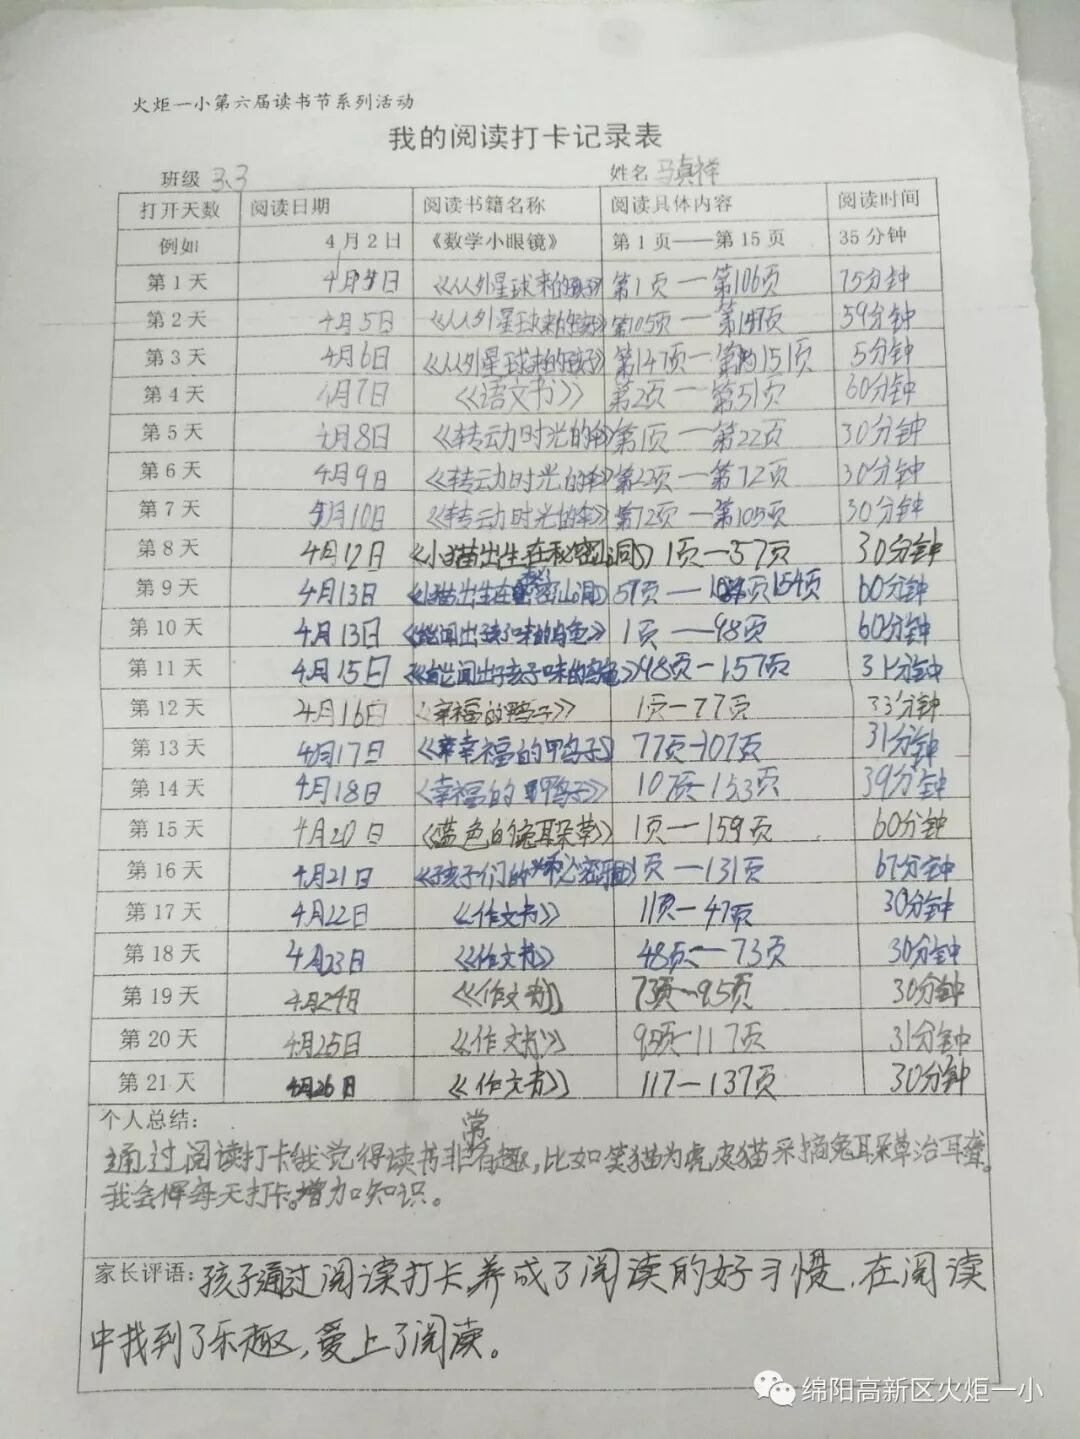 火炬一小第六届读书节系列活动
我的阅读打卡记录表
班级 3.3 姓名 马真祥
打开天数 阅读日期 阅读书籍名称 阅读具体内容 阅读时间
例如 4月2日 《数学小眼镜》 第1页——第15页 35分钟
第1天 4月4日 《从外星球来的孩子》 第1页—第106页 75分钟
第2天 4月5日 《从外星球来的孩子》 第105页—第147页 59分钟
第3天 4月6日 《从外星球来的孩子》 第147页—第151页 5分钟
第4天 4月7日 《语文书》 第2页—第51页 60分钟
第5天 4月8日 《转动时光的伞》 第1页—第22页 30分钟
第6天 4月9日 《转动时光的伞》 第22页—第72页 30分钟
第7天 4月10日 《转动时光的伞》 第72页—第105页 30分钟
第8天 4月12日 《小猫出生在秘密山洞》 1页—57页 30分钟
第9天 4月13日 《小猫出生在秘密山洞》 57页—154页 60分钟
第10天 4月13日 《能闻出孩子味的乌龟》 1页—98页 60分钟
第11天 4月15日 《能闻出孩子味的乌龟》 98页—157页 31分钟
第12天 4月16日 《幸福的鸭子》 1页—77页 33分钟
第13天 4月17日 《幸福的鸭子》 77页-107页 31分钟
第14天 4月18日 《幸福的鸭子》 107页-153页 39分钟
第15天 4月20日 《蓝色的兔耳朵草》 1页—159页 60分钟
第16天 4月21日 《孩子们的秘密 1页—131页 67分钟
第17天 4月22日 《作文书》 11页—47页 30分钟
第18天 4月23日 《作文书》 48页—73页 30分钟
第19天 4月24日 《作文书》 73页—95页 30分钟
第20天 4月25日 《作文书》 95页-117页 31分钟
第21天 4月26日 《作文书》 117—137页 30分钟
个人总结:
通过阅读打卡我觉得读书非常有趣,比如笑猫为虎皮猫采摘兔耳朵草治耳聋。
我会每天打卡。增加知识。
家长评语:孩子通过阅读打卡,养成了阅读的好习惯,在阅读
中找到了乐趣,爱上了阅读。
绵阳高新区火炬一小